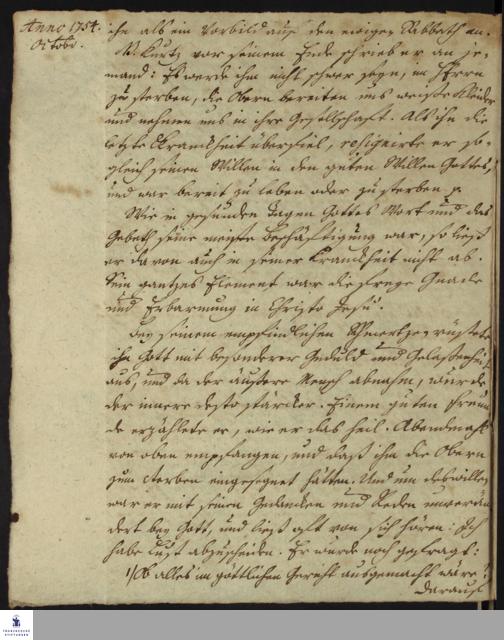 Anno 1754.
Octobr.
ihn als ein Vorbild auf den ewigen Sabbath an.
N. Kurtz vor seinem Ende schrieb er an je-
mand: Es werde ihm nicht schwer seyn, im Herrn
zu sterben, die Obern bereiten uns weiße Kleider
und nehmen uns in ihre Gesellschaft. Als ihn die
letzte Kranckheit überfiel, resignirte er so-
gleich seinen Willen in den guten Willen Gottes,
und war bereit zu leben oder zu sterben p.
Wie in gesunden Tagen Gottes Wort und das
Gebeth seine meiste Beschäftigung war, so ließ
er davon auch in seiner Kranckheit nicht ab.
Sein gantzes Element war die freye Gnade
und Erbarmung in Christo Jesu.
Bey seinem empfindlichen Schmertze rüstete
ihn Gott mit besonderer Geduld und Gelassenheit
aus, und da der äussere Mensch abnahm, wurde
der innere desto stärcker. Einem guten Freun
de erzählete er, wie er das heil. Abendmahl
von oben empfangen, und daß ihn die Obern
zum Sterben eingesegnet hätten. Und um deswillen
war er mit seinen Gedancken und Reden unverän
dert bey Gott, und ließ oft von sich hören: Ich
habe Lust abzuscheiden. Er wurde noch gefragt:
1) Ob alles im göttlichen Gericht ausgemacht wäre?
Darauf
FRANCKESCHE
STIFTUNGEN